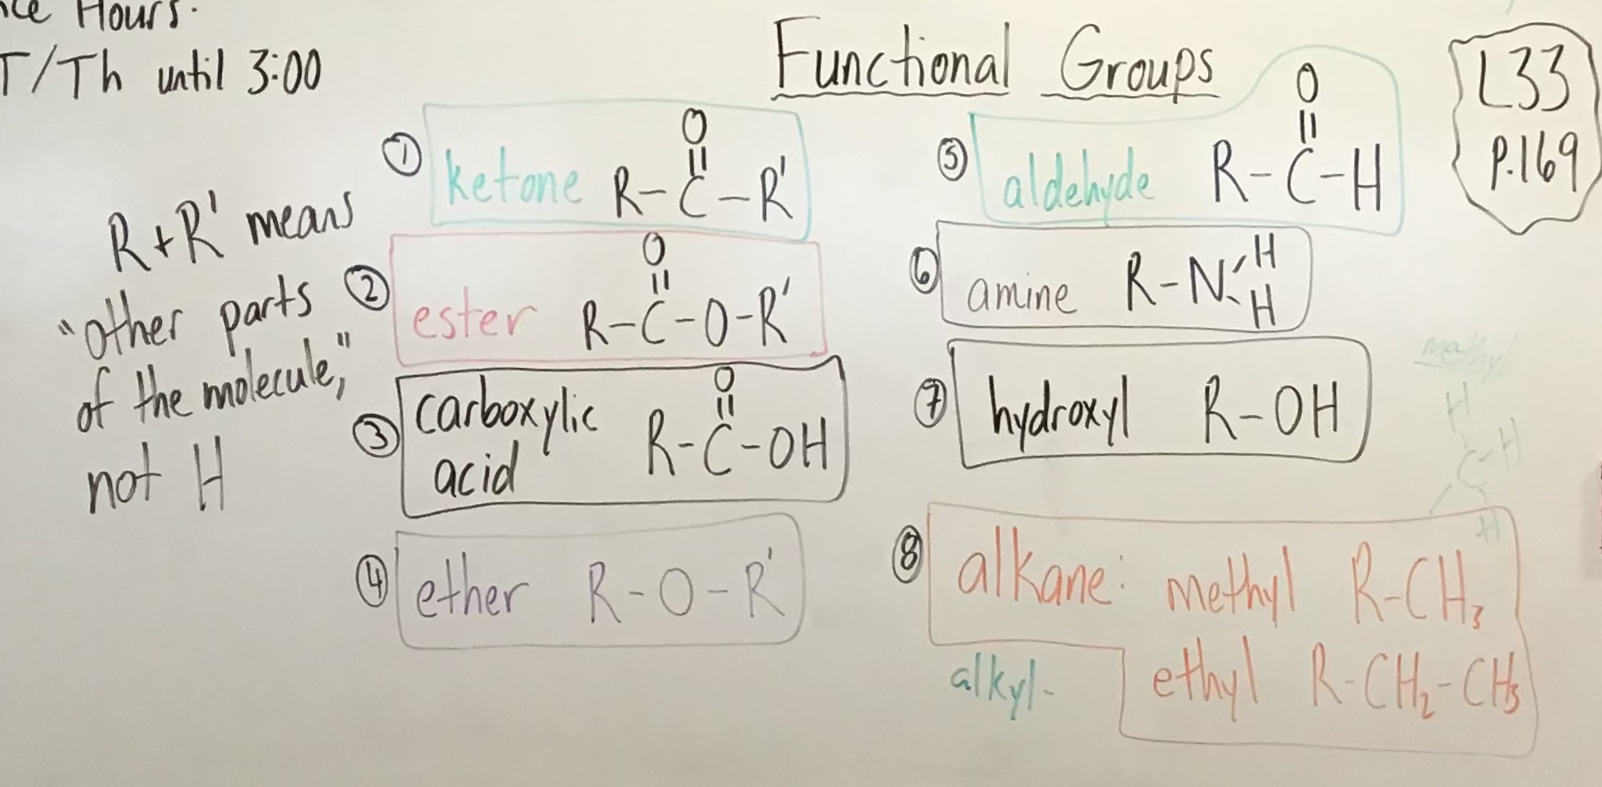 Hours.
T/Th until 3:00
Functional Groups
L33
p.169
R+R' means
"other parts
of the molecule,"
not H
① ketone R-C-R'
O
② ester R-C-O-R'
O
③ carboxylic
acid R-C-OH
O
④ ether R-O-R'
⑤ aldehyde R-C-H
O
⑥ amine R-N H
H
⑦ hydroxyl R-OH
methyl
H
C-H
H
⑧ alkane: methyl R-CH₃
alkyl- ethyl R-CH₂-CH₃